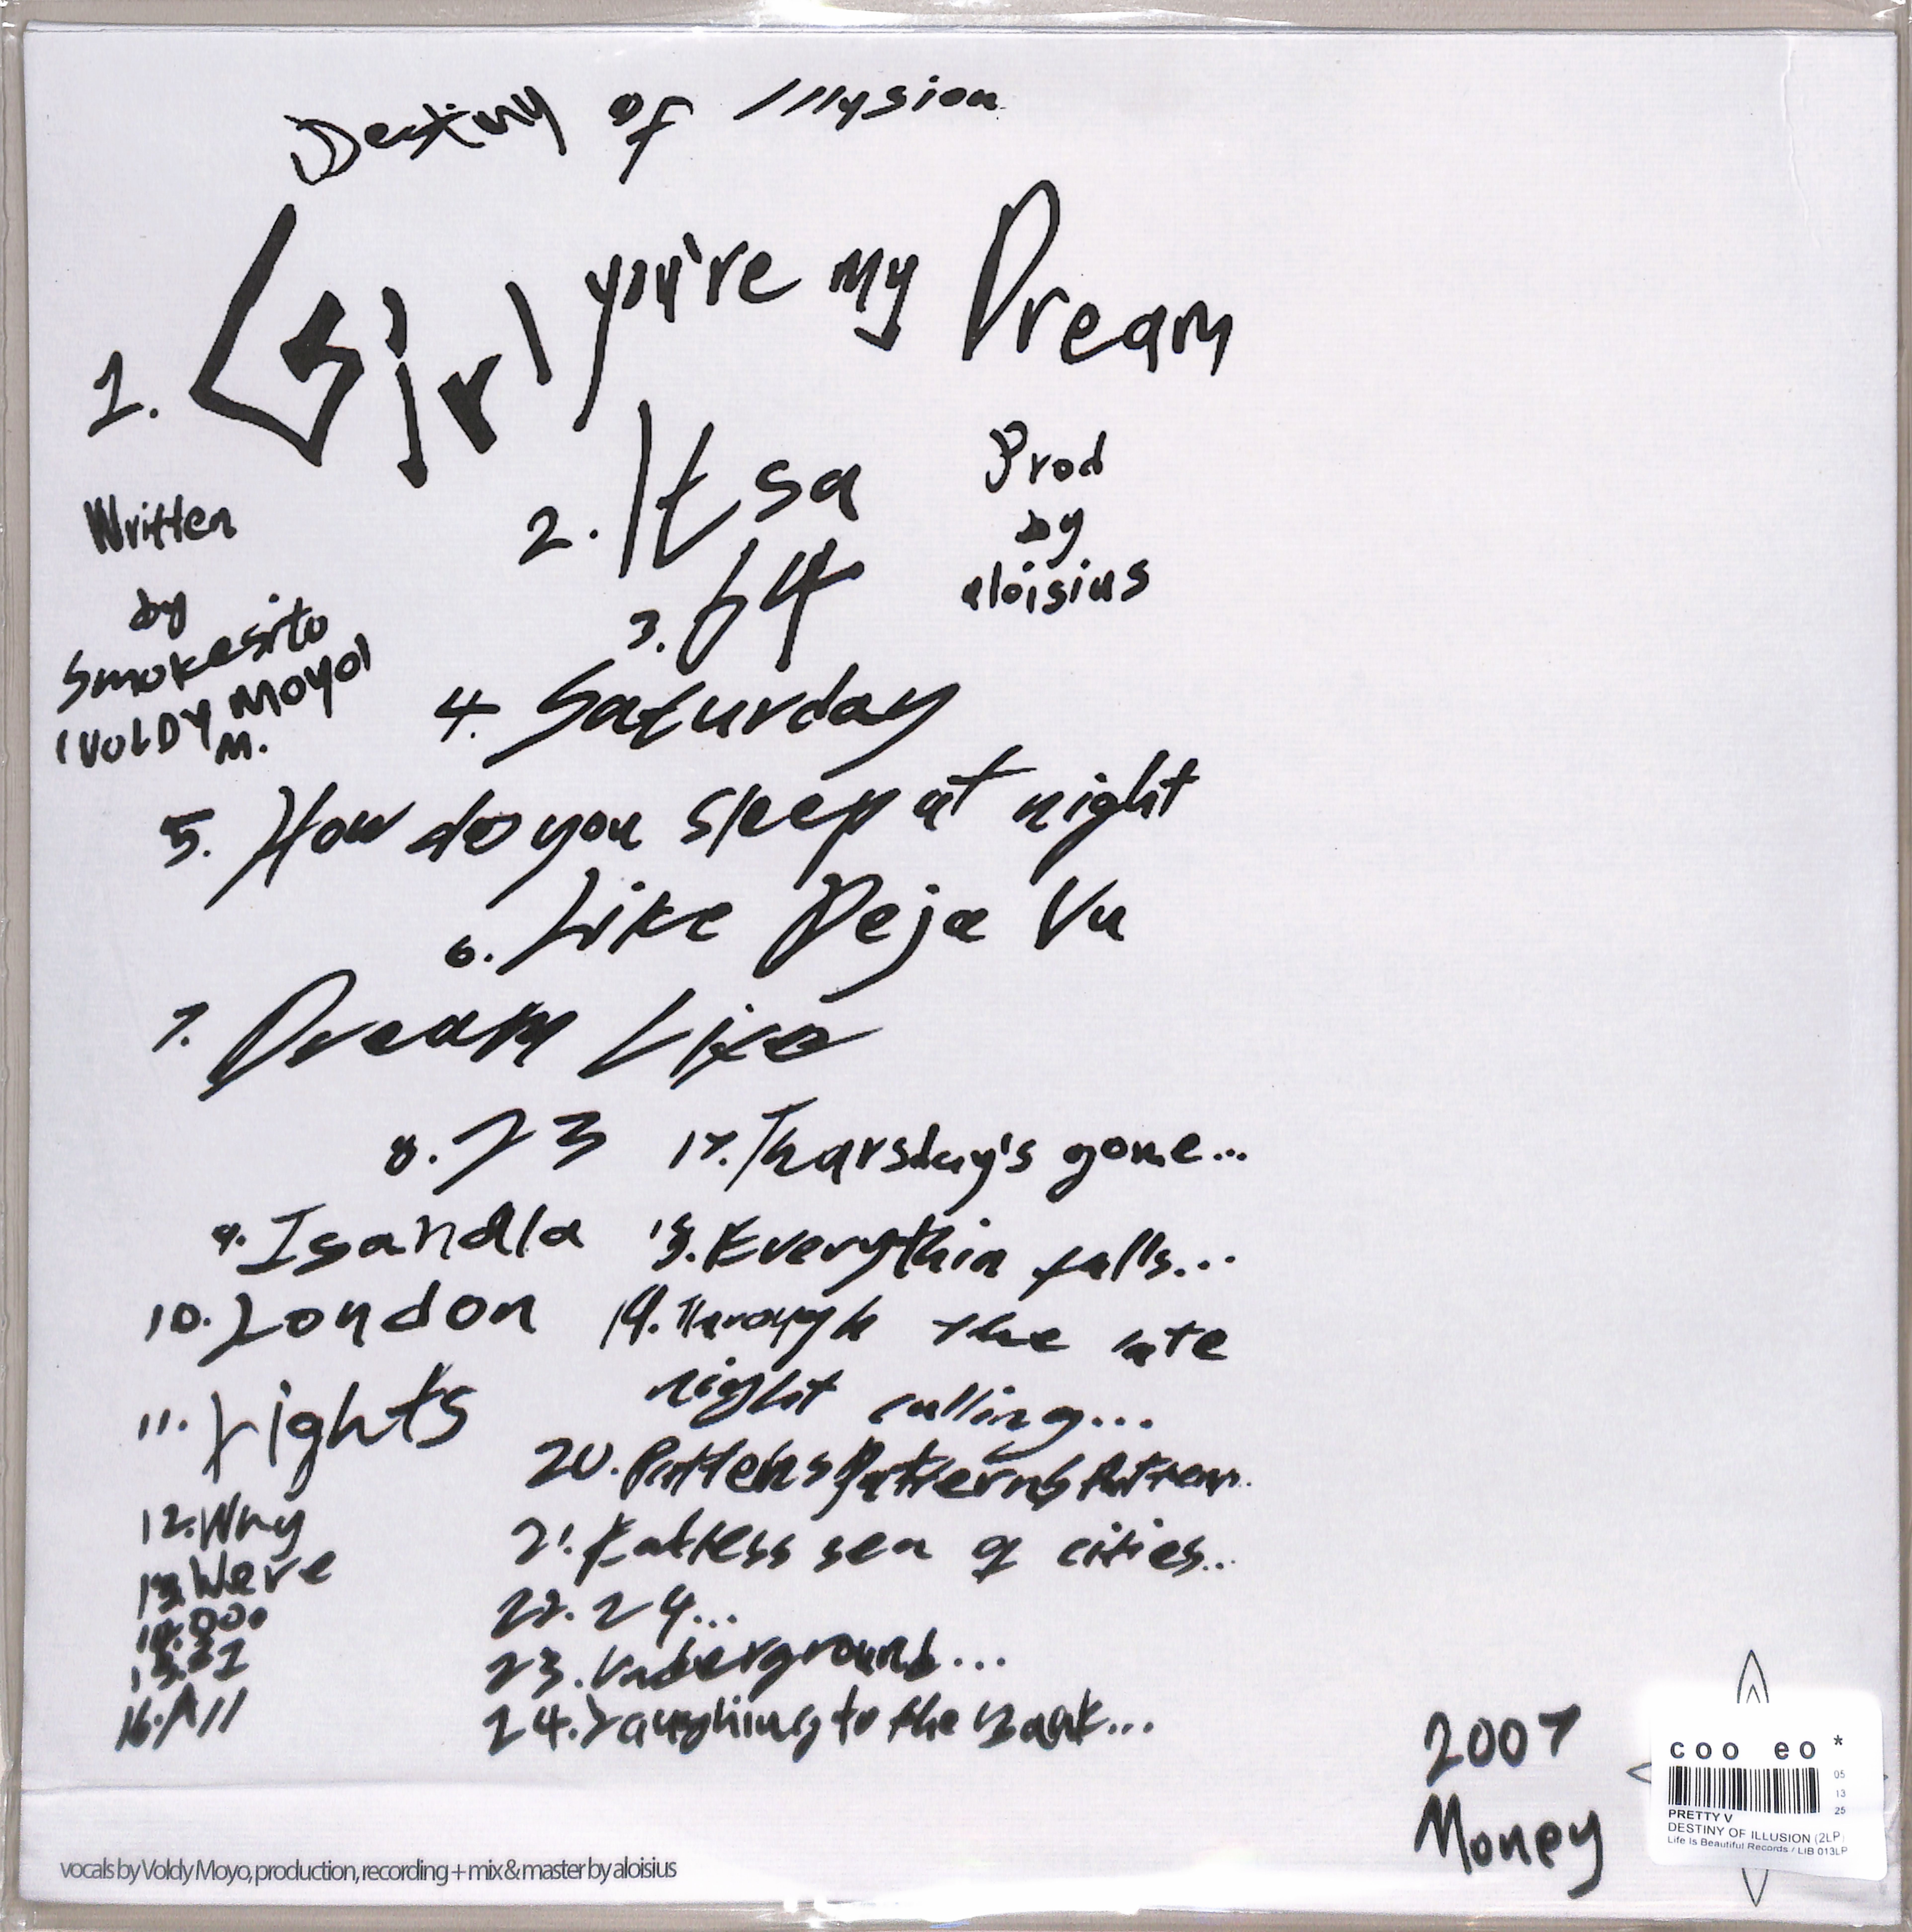 Destiny of Illusion
1. Girl you're my Dream
2. Itsa
Prod
by
aloisius
Written
by
Smokesito
(VOLDY MOYO)
M.
3. 64
4. Saturday
5. How do you sleep at night
6. Like Deja Vu
7. Dream Like
8. 23
9. Isandla
10. London
11. Lights
12. Why
13. Were
14. 000
15.
16. All
17. Thursday's gone...
18. Everythin falls...
19. Through the late
night calling...
20. Patterns Patterns Pattern..
21. sea of cities..
22. 24...
23. Underground...
24. Laughing to the Bank...
2007
Money
coo eo *
05
13
25
PRETTY V
DESTINY OF ILLUSION (2LP)
Life Is Beautiful Records / LIB 013LP
vocals by Voldy Moyo, production, recording + mix & master by aloisius